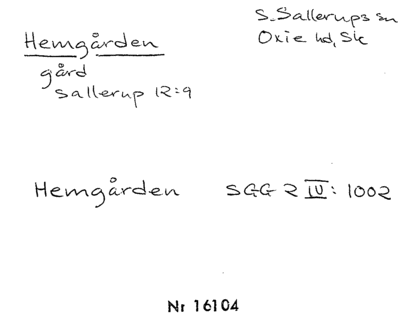 Hemgården
S. Sallerups sn
Oxie hd, Sk
gård
Sallerup 12:9
Hemgården SGG R IV: 1002
Nr 16104